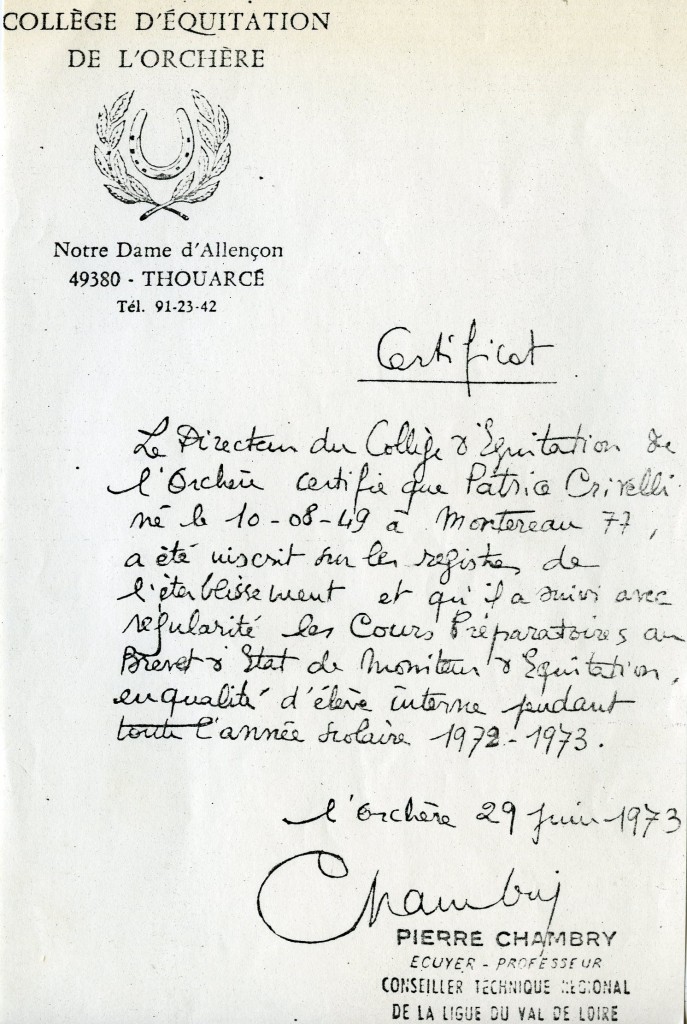 COLLÈGE D'ÉQUITATION
DE L'ORCHÈRE
Notre Dame d'Allençon
49380 - THOUARCÉ
Tél. 91-23-42
Certificat
Le Directeur du Collège d'Equitation de
l'Orchère certifie que Patrice Crivelli
né le 10-08-49 à Montereau 77,
a été inscrit sur les registres de
l'établissement et qu'il a suivi avec
régularité les Cours Préparatoires au
Brevet d'Etat de Moniteur d'Equitation,
en qualité d'élève interne pendant
toute l'année scolaire 1972-1973.
l'Orchère 29 juin 1973
Chambry
PIERRE CHAMBRY
ECUYER - PROFESSEUR
CONSEILLER TECHNIQUE RÉGIONAL
DE LA LIGUE DU VAL DE LOIRE